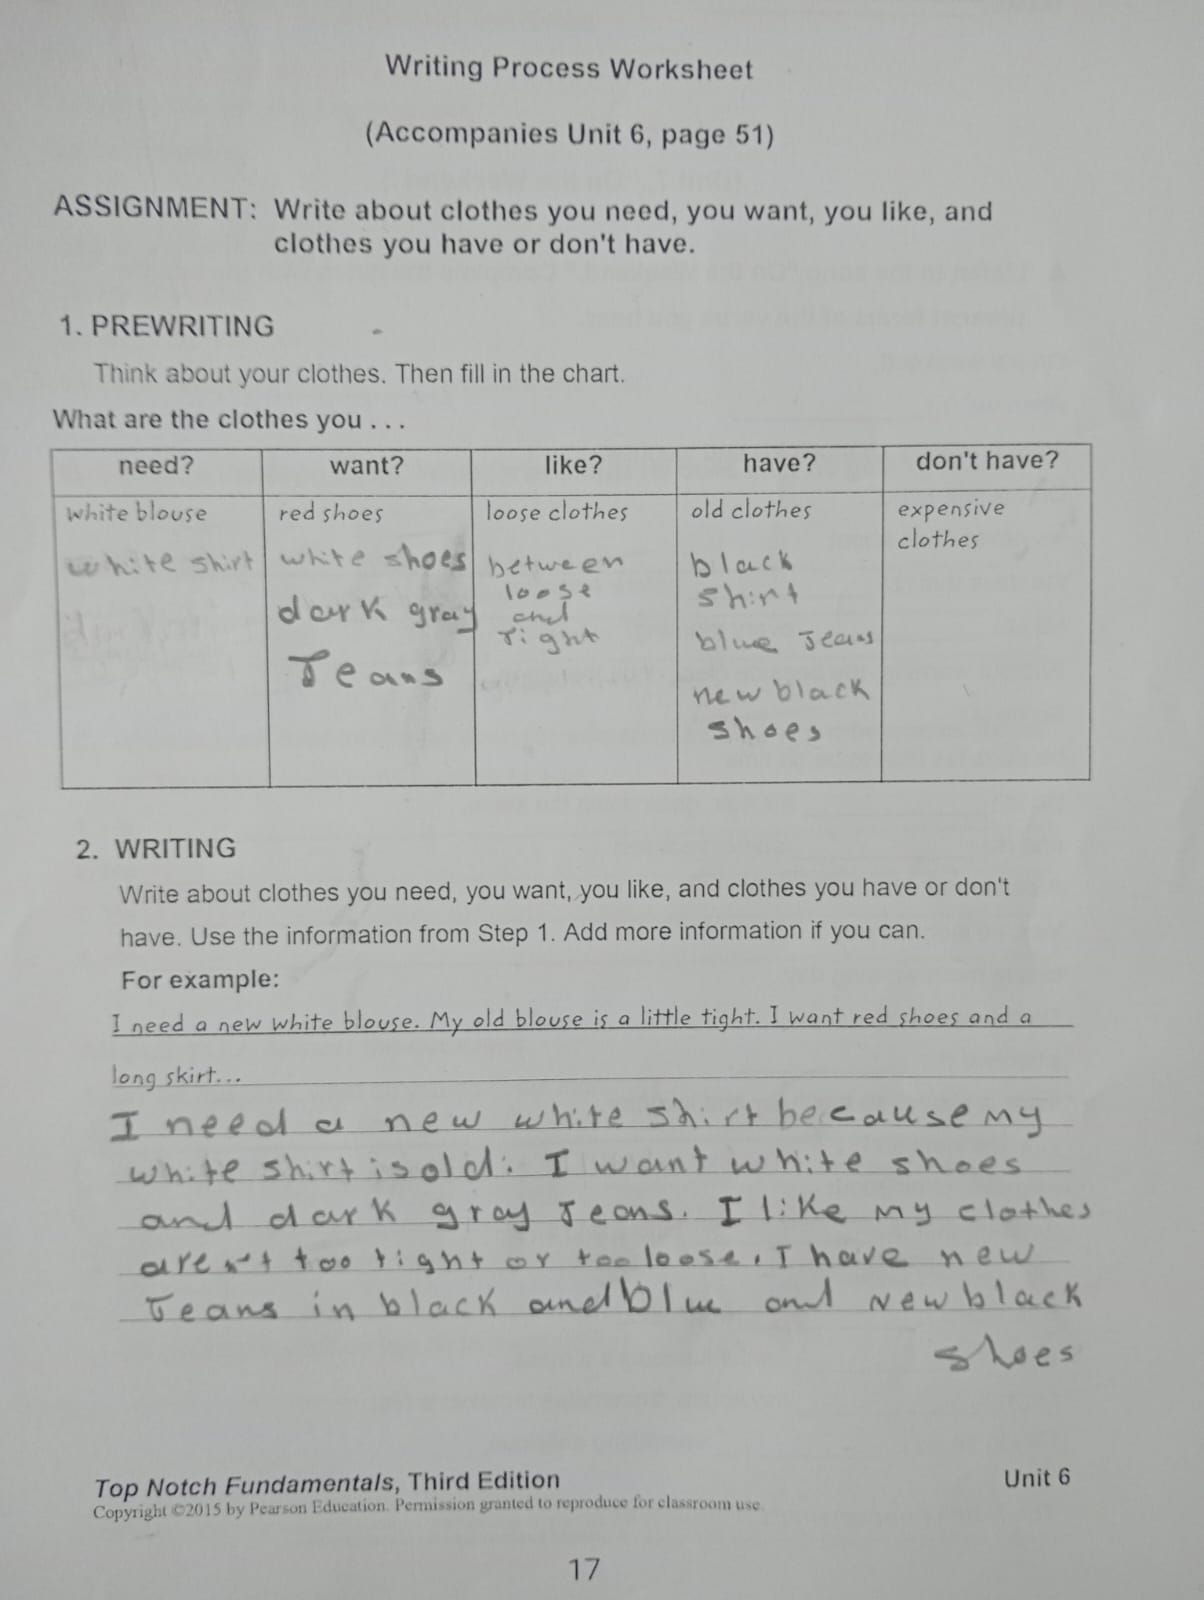 Writing Process Worksheet
(Accompanies Unit 6, page 51)
ASSIGNMENT: Write about clothes you need, you want, you like, and
clothes you have or don't have.
1. PREWRITING
Think about your clothes. Then fill in the chart.
What are the clothes you . . .
need? want? like? have? don't have?
white blouse red shoes loose clothes old clothes expensive
clothes
white shirt white shoes between black
loose shirt
dark gray and
right blue Jeans
Jeans new black
shoes
2. WRITING
Write about clothes you need, you want, you like, and clothes you have or don't
have. Use the information from Step 1. Add more information if you can.
For example:
I need a new white blouse. My old blouse is a little tight. I want red shoes and a
long skirt...
I need a new white shirt because my
white shirt is old. I want white shoes
and dark gray Jeans. I like my clothes
aren't too tight or too loose. I have new
Jeans in black and blue and new black
shoes
Top Notch Fundamentals, Third Edition Unit 6
Copyright ©2015 by Pearson Education. Permission granted to reproduce for classroom use.
17